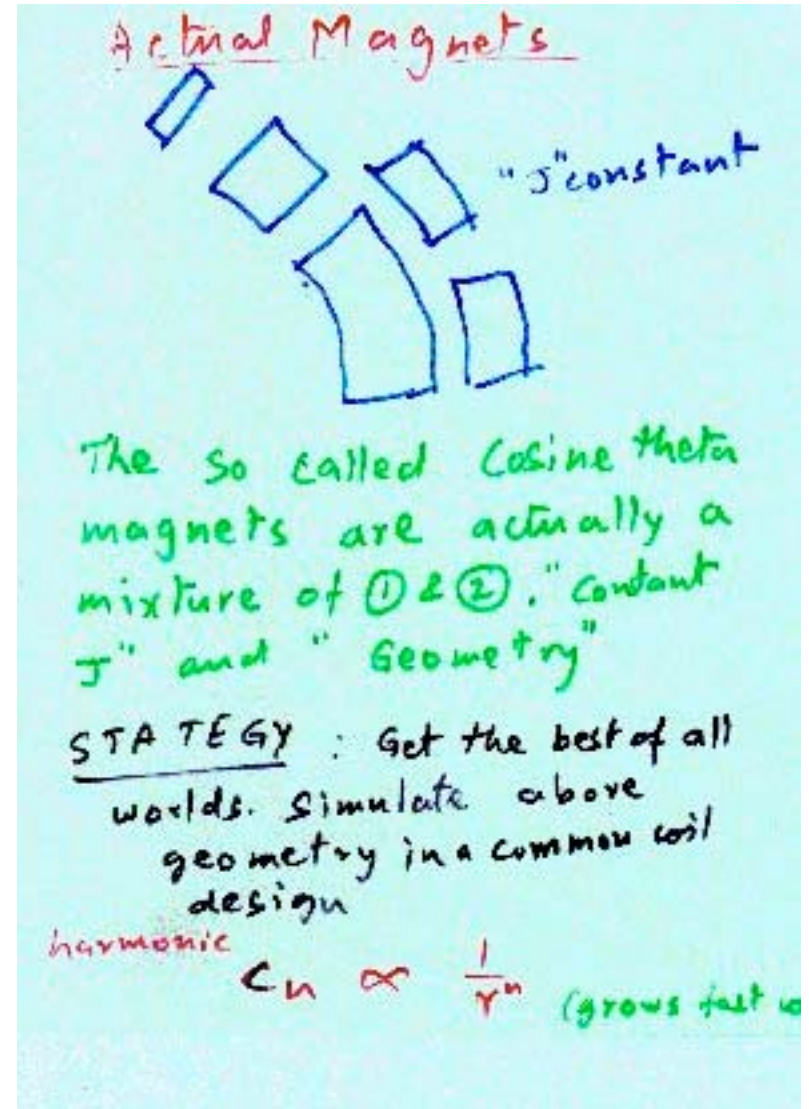 Actual Magnets
"J" constant
The so called Cosine theta
magnets are actually a
mixture of ① & ②. "Contant
J" and " Geometry"
STATEGY : Get the best of all
worlds. Simulate above
geometry in a common coil
design
harmonic
Cn ∝ 1/rⁿ (grows fast